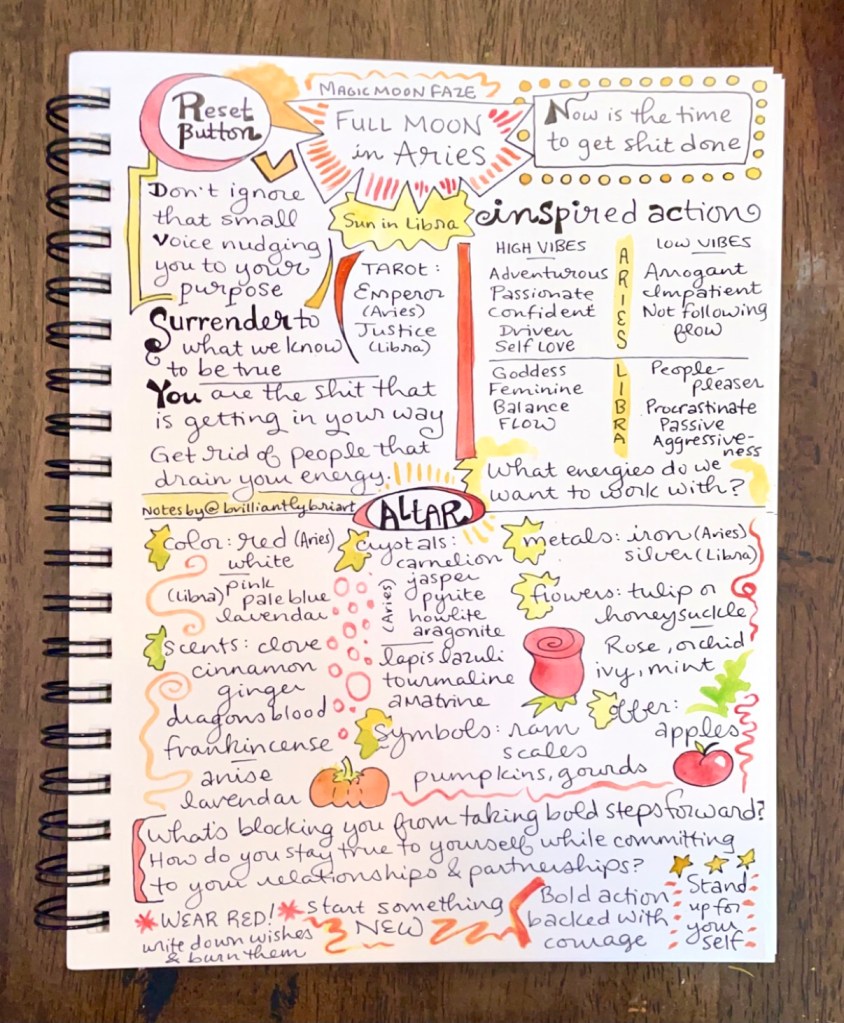 Reset
Button
MAGIC MOON FAZE
FULL MOON
in Aries
Now is the time
to get shit done
Don't ignore
that small
voice nudging
you to your
purpose
Surrender to
what we know
to be true
You are the shit that
is getting in your way
Get rid of people that
drain your energy.
Notes by @brilliantlybriart
Sun in Libra
TAROT:
Emperor
(Aries)
Justice
(Libra)
inspired action
HIGH VIBES
Adventurous
Passionate
Confident
Driven
Self Love
ARIES
LOW VIBES
Arrogant
Impatient
Not following
flow
Goddess
Feminine
Balance
FLOW
LIBRA
People-
pleaser
Procrastinate
Passive
Aggressive-
ness
What energies do we
want to work with?
ALTAR
color: red (Aries)
white
pink
(Libra) pale blue
lavendar
scents: clove
cinnamon
ginger
dragons blood
frankincense
anise
lavendar
crystals:
carnelion
jasper
(Aries) pyrite
howlite
aragonite
lapis lazuli
tourmaline
amatrine
symbols: ram
scales
pumpkins, gourds
metals: iron (Aries)
silver (Libra)
flowers: tulip or
honeysuckle
Rose, orchid
ivy, mint
offer:
apples
What's blocking you from taking bold steps forward?
How do you stay true to yourself while committing
to your relationships & partnerships?
WEAR RED!
write down wishes
& burn them
start something
NEW
Bold action
backed with
courage
Stand
up for
your
self